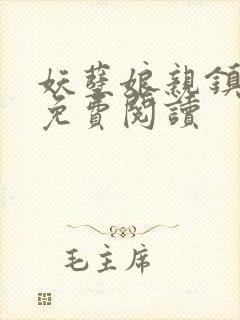 妖孽娘親鎮
免費閱讀
毛主席